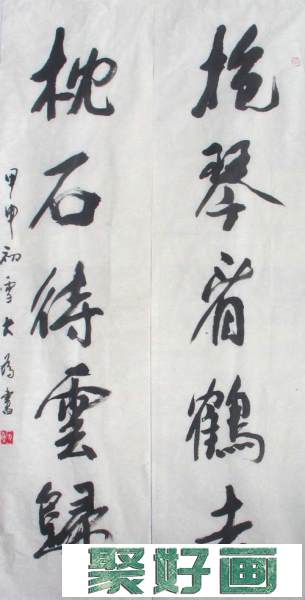 抱琴看鶴去
枕石待雲歸
甲申初雪大為書
聚好画